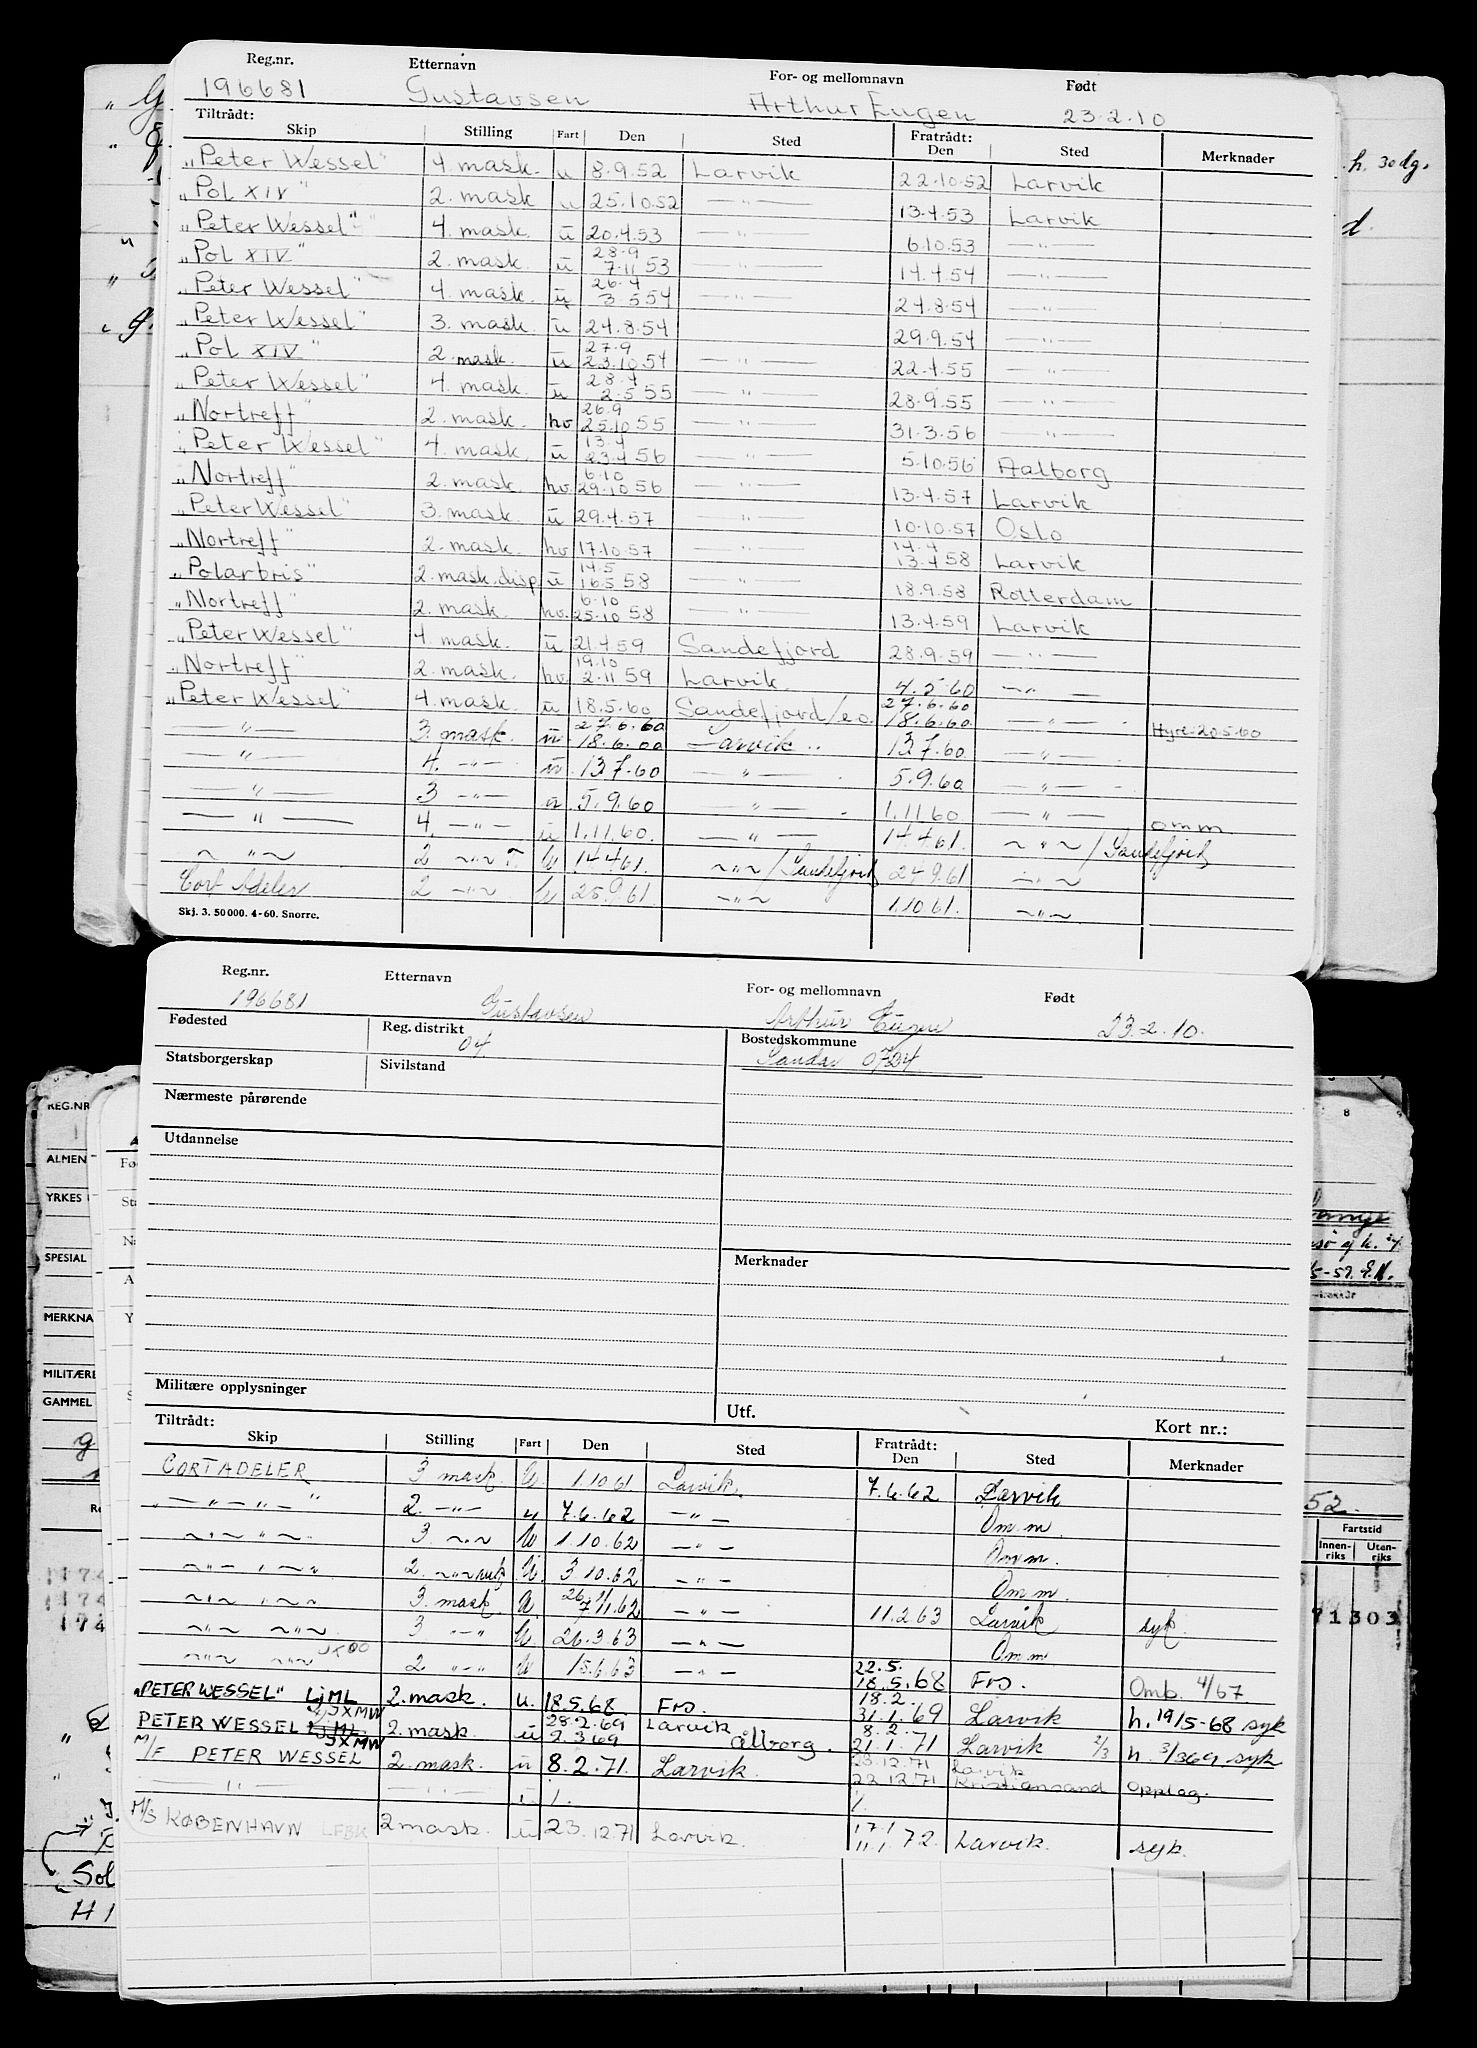 Reg.nr. Etternavn For- og mellomnavn Født
196681 Gustavsen Arthur Eugen 23.2.10
Tiltrådt: Fratrådt:
Skip Stilling Fart Den Sted Den Sted Merknader
„Peter Wessel" 4. mask. u 8.9.52 Larvik 22.10.52 Larvik
„Pol XIV" 2. mask u 25.10.52 —"— 13.4.53 Larvik
„Peter Wessel" 4. mask. u 20.4.53 —"— 6.10.53 —"—
„Pol XIV" 2. mask. u 28.9 7.11 53 —"— 14.4.54 —"—
„Peter Wessel" 4. mask. u 26.4 3.5 54 —"— 24.8.54 —"—
„Peter Wessel" 3. mask. u 24.8.54 29.9.54 —"—
„Pol XIV" 2. mask. u 27.9 23.10.54 —"— 22.4.55 —"—
„Peter Wessel" 4. mask. u 28.4 2.5 55 —"— 28.9.55 —"—
„Nortreff" 2. mask. hv. 26.9 25.10 55 —"— 31.3.56 —"—
„Peter Wessel" 4. mask. u 13.4 23.4 56 —"— 5.10.56 Aalborg
„Nortreff" 2. mask. hv. 6.10 29.10 56 —"— 13.4.57 Larvik
„Peter Wessel" 3. mask. u 29.4.57 —"— 10.10.57 Oslo
„Nortreff" 2. mask. hv 17.10.57 —"— 14.4 13.4 58 Larvik
„Polarbris" 2. mask. disp. u 14.5 16.5 58 —"— 18.9.58 Rotterdam
„Nortreff" 2. mask. hv. 6.10 25.10 58 —"— 13.4.59 Larvik
„Peter Wessel" 4. mask. u 21.4.59 Sandefjord 28.9.59 —"—
„Nortreff" 2. mask. hv. 19.10 2.11 59 Larvik. 4.5.60 —"—
„Peter Wessel" 4. mask. u 18.5.60 Sandefjord/e.o. 27.6.60 18.6.60 —"— Hyre 20.5.60
—"— 3. mask. u. 27.6.60 18.6.60 Larvik 13.7.60 —"—
—"— 4. —"— u. 13.7.60 —"— 5.9.60 —"—
—"— 3 —"— u 5.9.60 —"— 1.11.60 —"— omm
—"— 4. —"— u 1.11.60. —"— 14.4.61. —"— / Sandefjord
—"— 2 —"— u 14.4.61. —"— / Sandefjord 24.9.61 —"—
Cort Adeler 2 —"— u 25.9.61 —"— 1.10.61. —"—
Skj. 3. 50 000. 4-60. Snorre.
Reg.nr. Etternavn For- og mellomnavn Født
196681 Gustavsen Arthur Eugen 23.2.10.
Fødested Reg. distrikt 04 Bostedskommune
Statsborgerskap Sivilstand Sandar 0724
Nærmeste pårørende
Utdannelse
Merknader
Militære opplysninger Utf. Kort nr.:
Tiltrådt: Fratrådt:
Skip Stilling Fart Den Sted Den Sted Merknader
CORT ADELER 3 mask. U. 1.10.61 Larvik. 7.6.62 Larvik
„—"—"—" 2. —"— u 7.6.62 —"— Om m.
—"— "— 3. —"— U 1.10.62 —"— Om m.
—"— "— 2. —"— U. 3.10.62 —"— Om m.
—"— "— 3. mask. U. 26/11 7.11.62 —"— 11.2.63 Larvik syk.
—"— —"— 3 —"— U 26.3.63 —"— Om m
—"— —"— JXOO 2 —"— U 15.6.63 —"— 22.5. 18.5.68 Frs. Omb. 4/67
„PETER WESSEL" LjML JXMW 2. mask. u. 18.5.68 Frs. 18.2. 31.1.69 Larvik h. 19/5-68 syk
PETER WESSEL LjML JXMW 2. mask. u 28.2.69 2.3 69 Larvik ålborg. 8.2. 21.1.71 Larvik 2/3 h 3/3 69. syk
M/F PETER WESSEL 2. mask. u 8.2.71 Larvik. 23.12.71 22.12.71 Larvik Kristiansand opplag.
—"— —"— u 1. 1.
M/S KØBENHAVN LFBK 2 mask. u 23.12.71 Larvik. 17.1 11.1.72. Larvik. syk.
h. 30 dg.
d.
REG.NR
ALMEN
YRKES
SPESIAL
MERKNA
MILITÆRE
GAMMEL
8
52.
Fartstid
Innen-riks Uten-riks
71303
174
174
174
Sol
H 1